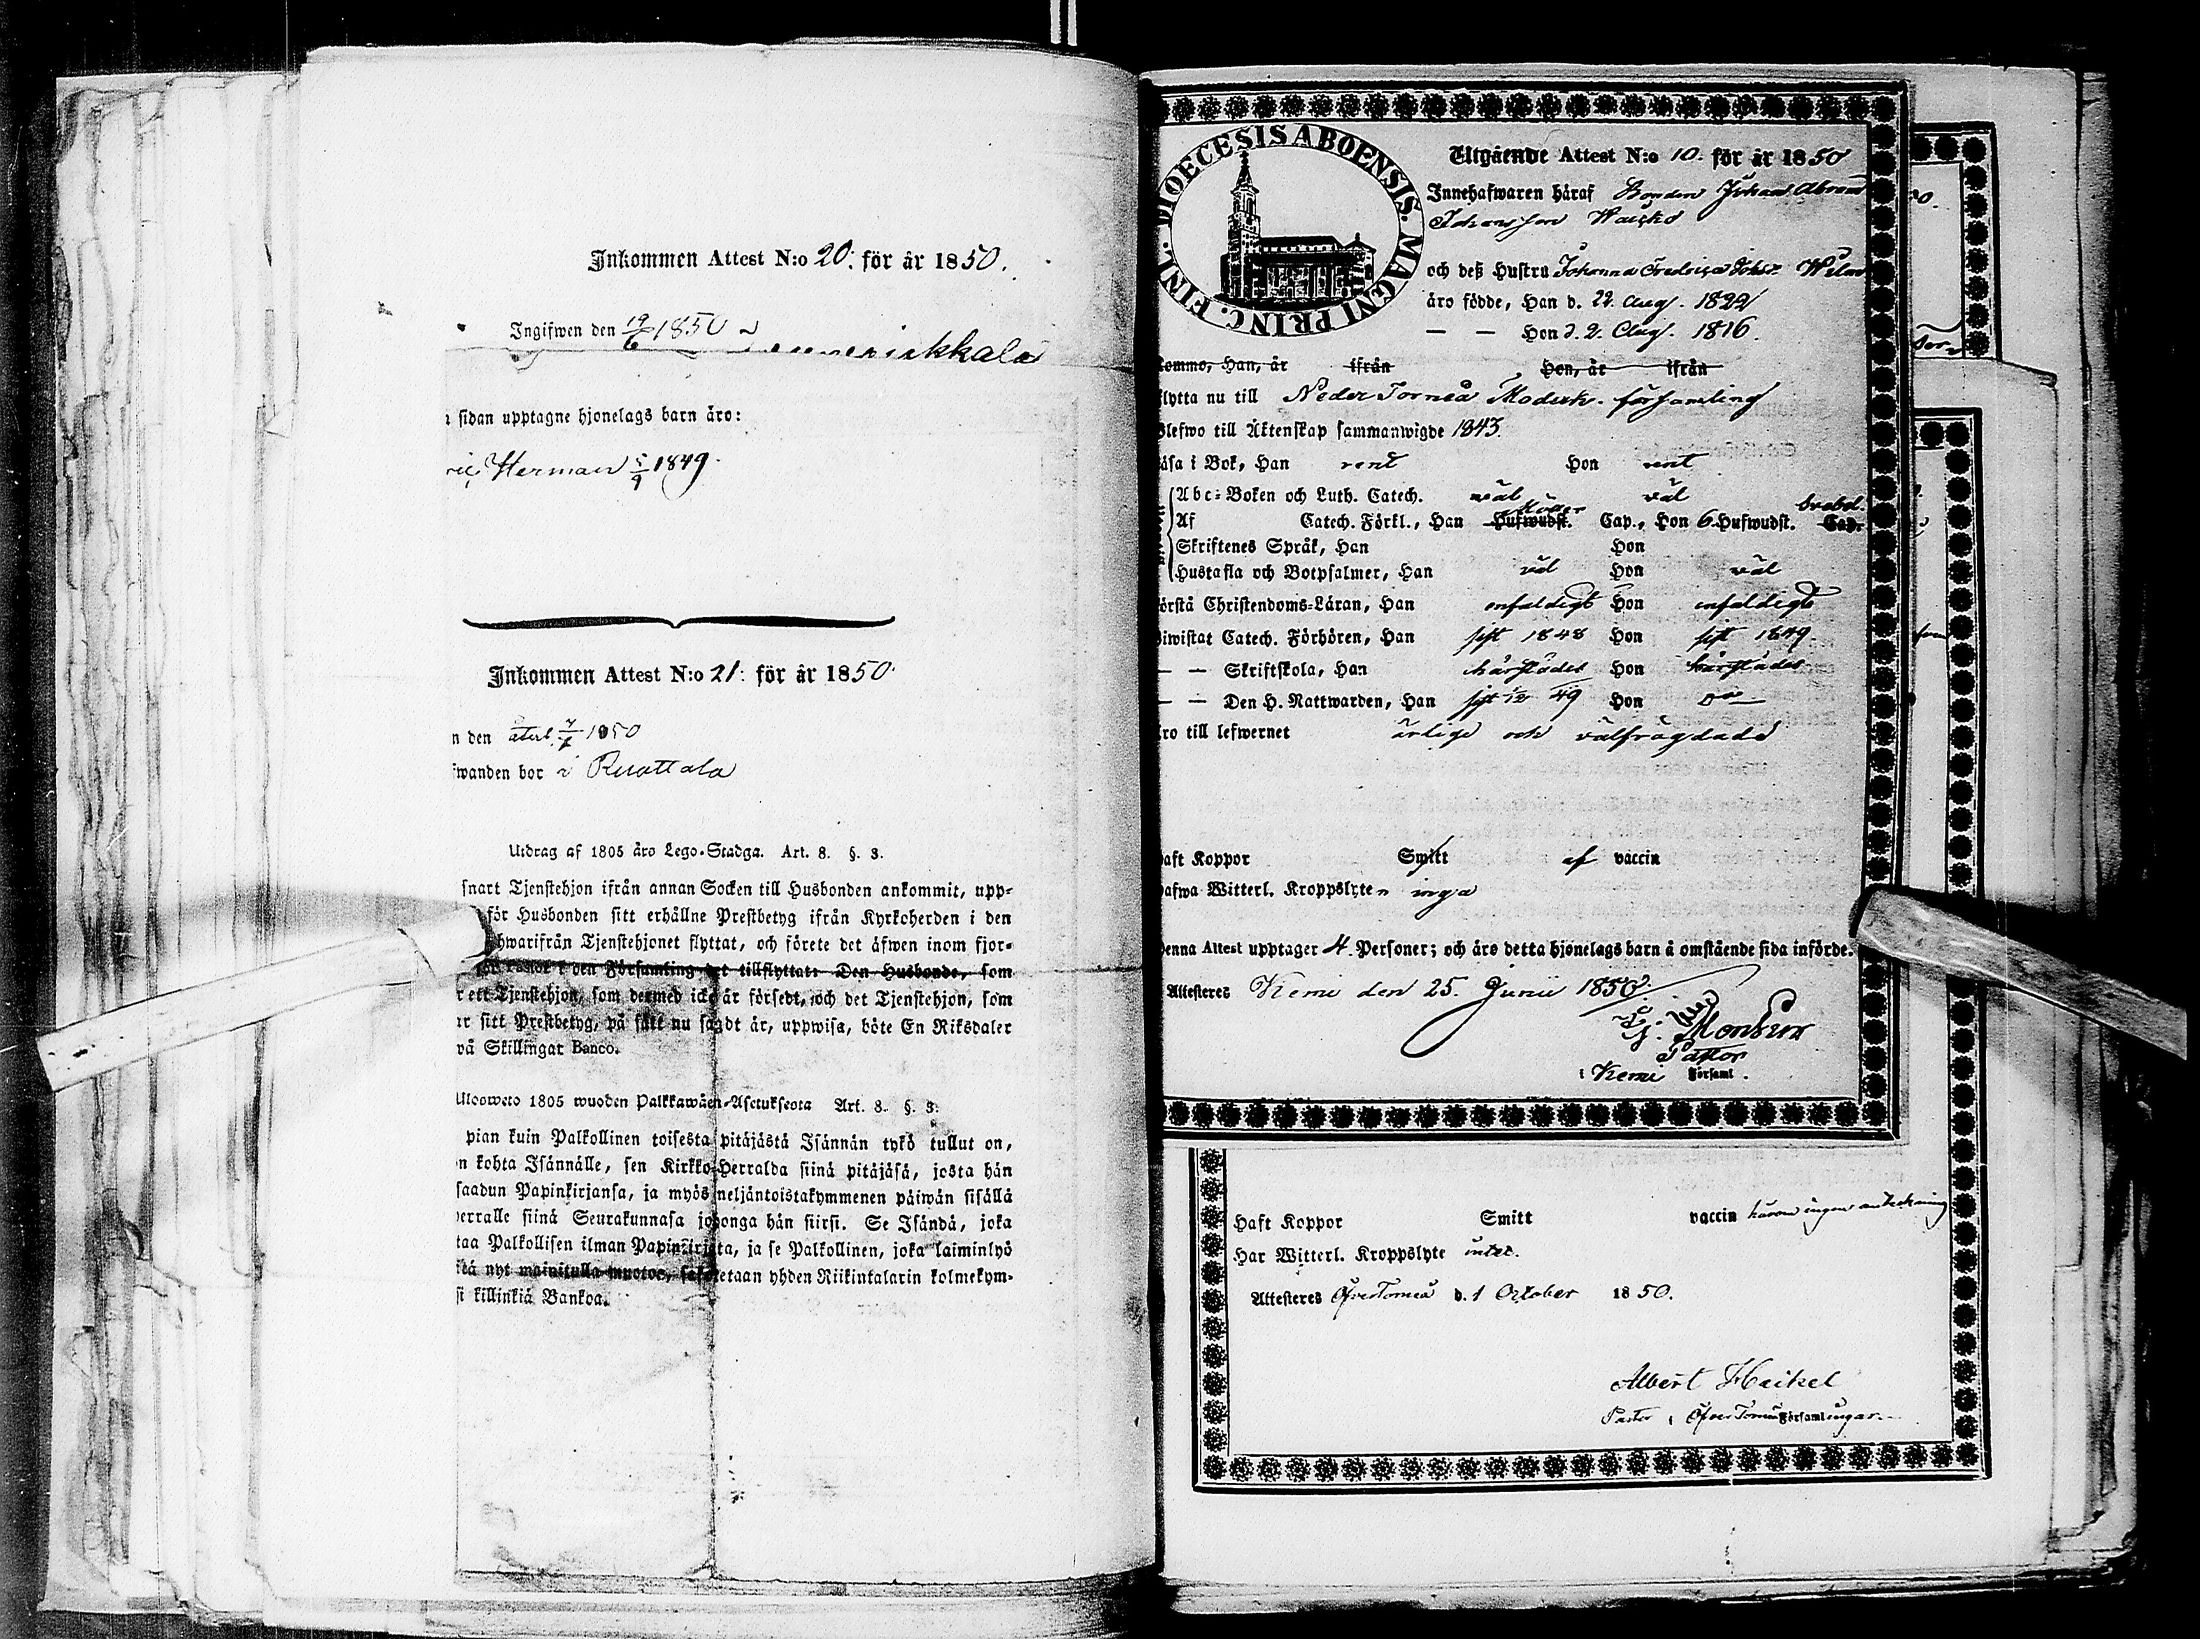 Inkommen Attest N:o 20. för år 1850.
Ingifwen den 19/6 1850
sidan upptagne hjonelags barn äro:
Herman 5/9 1849.
Inkommen Attest N:o 21. för år 1850.
n den återl. 7/7 1850
fwanden bor i Ruottala
Utdrag af 1805 års Lego-Stadga. Art. 8. §. 3.
snart Tjenstehjon ifrån annan Socken till Husbonden ankommit, upp-
för Husbonden sitt erhållne Prestbetyg ifrån Kyrkoherden i den
hwarifrån Tjenstehjonet flyttat, och förete det äfwen inom fjor-
i den Församling det tillflyttat: Den Husbonde, som
r ett Tjenstehjon, som dermed icke är försedt, och det Tjenstehjon, som
er sitt Prestbetyg, på sätt nu sagdt är, uppwisa, böte En Riksdaler
vå Skillingar Banco.
Ulosweto 1805 wuoden Palkkawäen-Asetuksesta Art. 8. §. 3.
pian kuin Palkollinen toisesta pitäjästä Isännän tykö tullut on,
n kohta Isännälle, sen Kirkko-Herralda siinä pitäjäsä, josta hän
saadun Papinkirjansa, ja myös neljäntoistakymmenen päiwän sisällä
herralle siinä Seurakunnasa johonga hän siirsi. Se Isändä, joka
taa Palkollisen ilman Papinkirjata, ja se Palkollinen, joka laiminlyö
itä nyt mainitulla muotoo, sakotetaan yhden Riikintalarin kolmekym-
si killinkiä Bankoa.
DIOECESIS ABOENSIS. MAGNI PRINC. FINL.
Utgående Attest N:o 10. för år 1850
Innehafwaren häraf Bonden Johan Abram
Johansson
och deß Hustru Johanna Fredrica Johsd.
äro födde, Han d. 22. Aug. 1822
— — Hon d. 2. Aug. 1816.
Kommo, Han, år ifrån Hon, år ifrån
flytta nu till Neder Torneå Moderk. församling
Blefwo till Äktenskap sammanwigde 1843.
Läsa i Bok, Han rent Hon rent
Abc-Boken och Luth. Catech. wäl väl
Af Catech. Förkl., Han Hufwudst. Cap., Hon 6. Hufwudst. Cap.
Skriftenes Språk, Han Hon
Hustafla och Botpsalmer, Han väl Hon väl
örstå Christendoms-Läran, Han enfaldigt Hon enfaldigt
Biwistat Catech. Förhören, Han sist 1848 Hon sist 1849.
— — Skriftskola, Han härstädes Hon härstädes
— — Den H. Nattwarden, Han sist 49 Hon
Äro till lefwernet ärlige och välfrägdade
Haft Koppor Smitt af vaccin
Hafwa Witterl. Kroppslyten inga
Denna Attest upptager 4. Personer; och äro detta hjonelags barn å omstående sida införde.
Attesteres Kemi den 25. Junii 1850.
Pastor
i Kemi Församl.
Haft Koppor Smitt vaccin härom ingen anteckning
Har Witterl. Kroppslyte intet.
Attesteres ÖfverTorneå d. 1 October 1850.
Albert Heikel
Pastor i ÖfverTorneå Församlingar